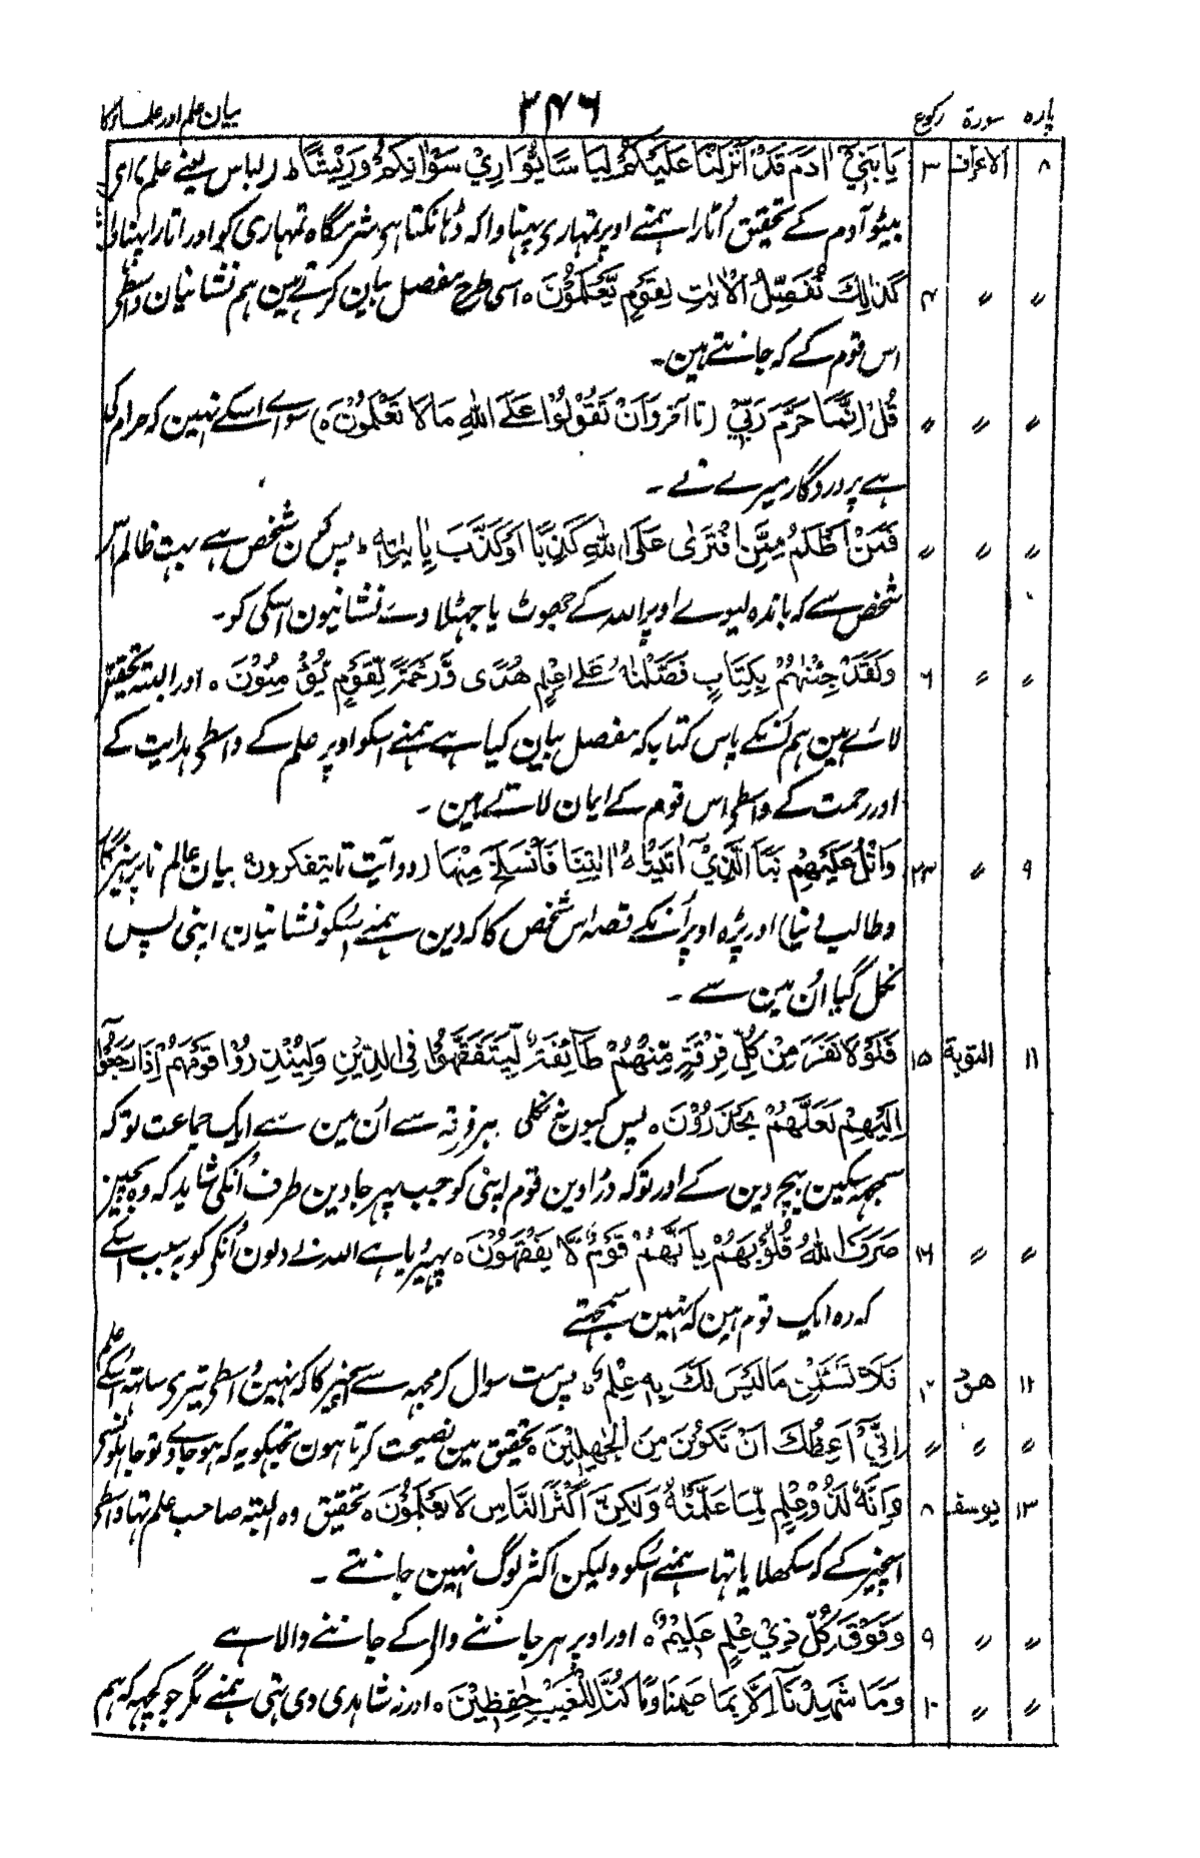 پاره سورة رکوع ۲۴۶ بیان علم اور علماء کا
۸ الاعراف ۳ يَا بَنِيْٓ اٰدَمَ قَدْ اَنْزَلْنَا عَلَيْكُمْ لِبَاسًا يُّوَارِيْ سَوْاٰتِكُمْ وَرِيْشًا ط (لباس یعنے علم) اے
بیٹو آدم کے تحقیق اُتارا ہمنے اوپر تمہاری پہناوا کہ ڈہانکتا ہی شرمگاہ تمہاری کو اور اتارا پہناؤ
〃 〃 ۴ كَذٰلِكَ نُفَصِّلُ الْاٰيٰتِ لِقَوْمٍ يَّعْلَمُوْنَ ہ اسی طرح مفصل بیان کرتے ہین ہم نشانیان واسطی
اس قوم کے کہ جانتے ہین۔
〃 〃 〃 قُلْ اِنَّمَا حَرَّمَ رَبِّيَ (تا آخر وَاَنْ تَقُوْلُوْا عَلَے اللّٰهِ مَا لَا تَعْلَمُوْنَ ہ) سوائے اسکے نہین کہ حرام کیا
ہے پروردگار میرے نے ۔
〃 〃 〃 فَمَنْ اَظْلَمُ مِمَّنِ افْتَرٰى عَلَى اللّٰهِ كَذِبًا اَوْ كَذَّبَ بِاٰيٰتِهٖ ط پس کون شخص ہے بہت ظالم اس
شخص سے کہ باندہ لیوے اوپر اللہ کے جھوٹ یا جہٹلاوے نشانیون اسکی کو۔
〃 〃 ۶ وَلَقَدْ جِئْنٰهُمْ بِكِتَابٍ فَصَّلْنٰهُ عَلٰے عِلْمٍ هُدًى وَّرَحْمَةً لِّقَوْمٍ يُّؤْمِنُوْنَ ہ اور البتہ تحقیق
لائے ہین ہم اُنکے پاس کتاب کہ مفصل بیان کیا ہے ہمنے اسکو اوپر علم کے واسطی ہدایت کے
اور رحمت کے واسطی اس قوم کے ایمان لاتے ہین ۔
۹ 〃 ۲۳ وَاتْلُ عَلَيْهِمْ نَبَاَ الَّذِيْٓ اٰتَيْنَاهُ اٰيٰتِنَا فَانْسَلَخَ مِنْهَا (دو آیت تا یتفکرون) بیان عالم نا پرہیزگار
و طالب دنیا اور پڑہ اوپر اُنکے قصہ اس شخص کا کہ دین ہمنے اسکو نشانیان اپنی پس
نکل گیا اُن مین سے ۔
۱۱ التوبة ۱۵ فَلَوْلَا نَفَرَ مِنْ كُلِّ فِرْقَةٍ مِّنْهُمْ طَآئِفَةٌ لِّيَتَفَقَّهُوْا فِى الدِّيْنِ وَلِيُنْذِرُوْا قَوْمَهُمْ اِذَا رَجَعُوْٓا
اِلَيْهِمْ لَعَلَّهُمْ يَحْذَرُوْنَ ہ پس کیون نہ نکلی ہر فرقہ سے اُن مین سے ایک جماعت تو کہ
سمجہ سکین بیچ دین کے اور تو کہ ڈراوین قوم اپنی کو جب پہر جاوین طرف اُنکی شاید کہ وہ بچین
〃 〃 ۱۶ صَرَفَ اللّٰهُ قُلُوْبَهُمْ بِاَنَّهُمْ قَوْمٌ لَّا يَفْقَهُوْنَ ہ پہیر دیا ہے اللہ نے دلون اُنکو کو بسبب اسکے
کہ وہ ایک قوم ہین کہ نہین سمجہتے
۱۲ هود ۴ فَلَا تَسْـَٔلْنِ مَا لَيْسَ لَكَ بِهٖ عِلْمٌ ہ پس مت سوال کر مجہہ سے اسچیز کا کہ نہین واسطی تیری ساتہ اسکے علم
〃 〃 〃 اِنِّيْٓ اَعِظُكَ اَنْ تَكُوْنَ مِنَ الْجٰهِلِيْنَ ہ تحقیق مین نصیحت کرتا ہون تجہکو یہ کہ ہو جاوے تو جاہلونسے
۱۳ یوسف ۸ وَاِنَّهٗ لَذُوْ عِلْمٍ لِّمَا عَلَّمْنٰهُ وَلٰكِنَّ اَكْثَرَ النَّاسِ لَا يَعْلَمُوْنَ ہ تحقیق وہ البتہ صاحب علم تہا واسطی
اسچیز کے کہ سکھلایا تہا ہمنے اسکو و لیکن اکثر لوگ نہین جانتے ۔
〃 〃 ۹ وَفَوْقَ كُلِّ ذِيْ عِلْمٍ عَلِيْمٌ ہ اور اوپر ہر جاننے والے کے جاننے والا ہے
〃 〃 ۱۰ وَمَا شَهِدْنَآ اِلَّا بِمَا عَلِمْنَا وَمَا كُنَّا لِلْغَيْبِ حٰفِظِيْنَ ہ اور نہ شاہدی دی تہی ہمنے مگر جو کچہہ کہ ہم